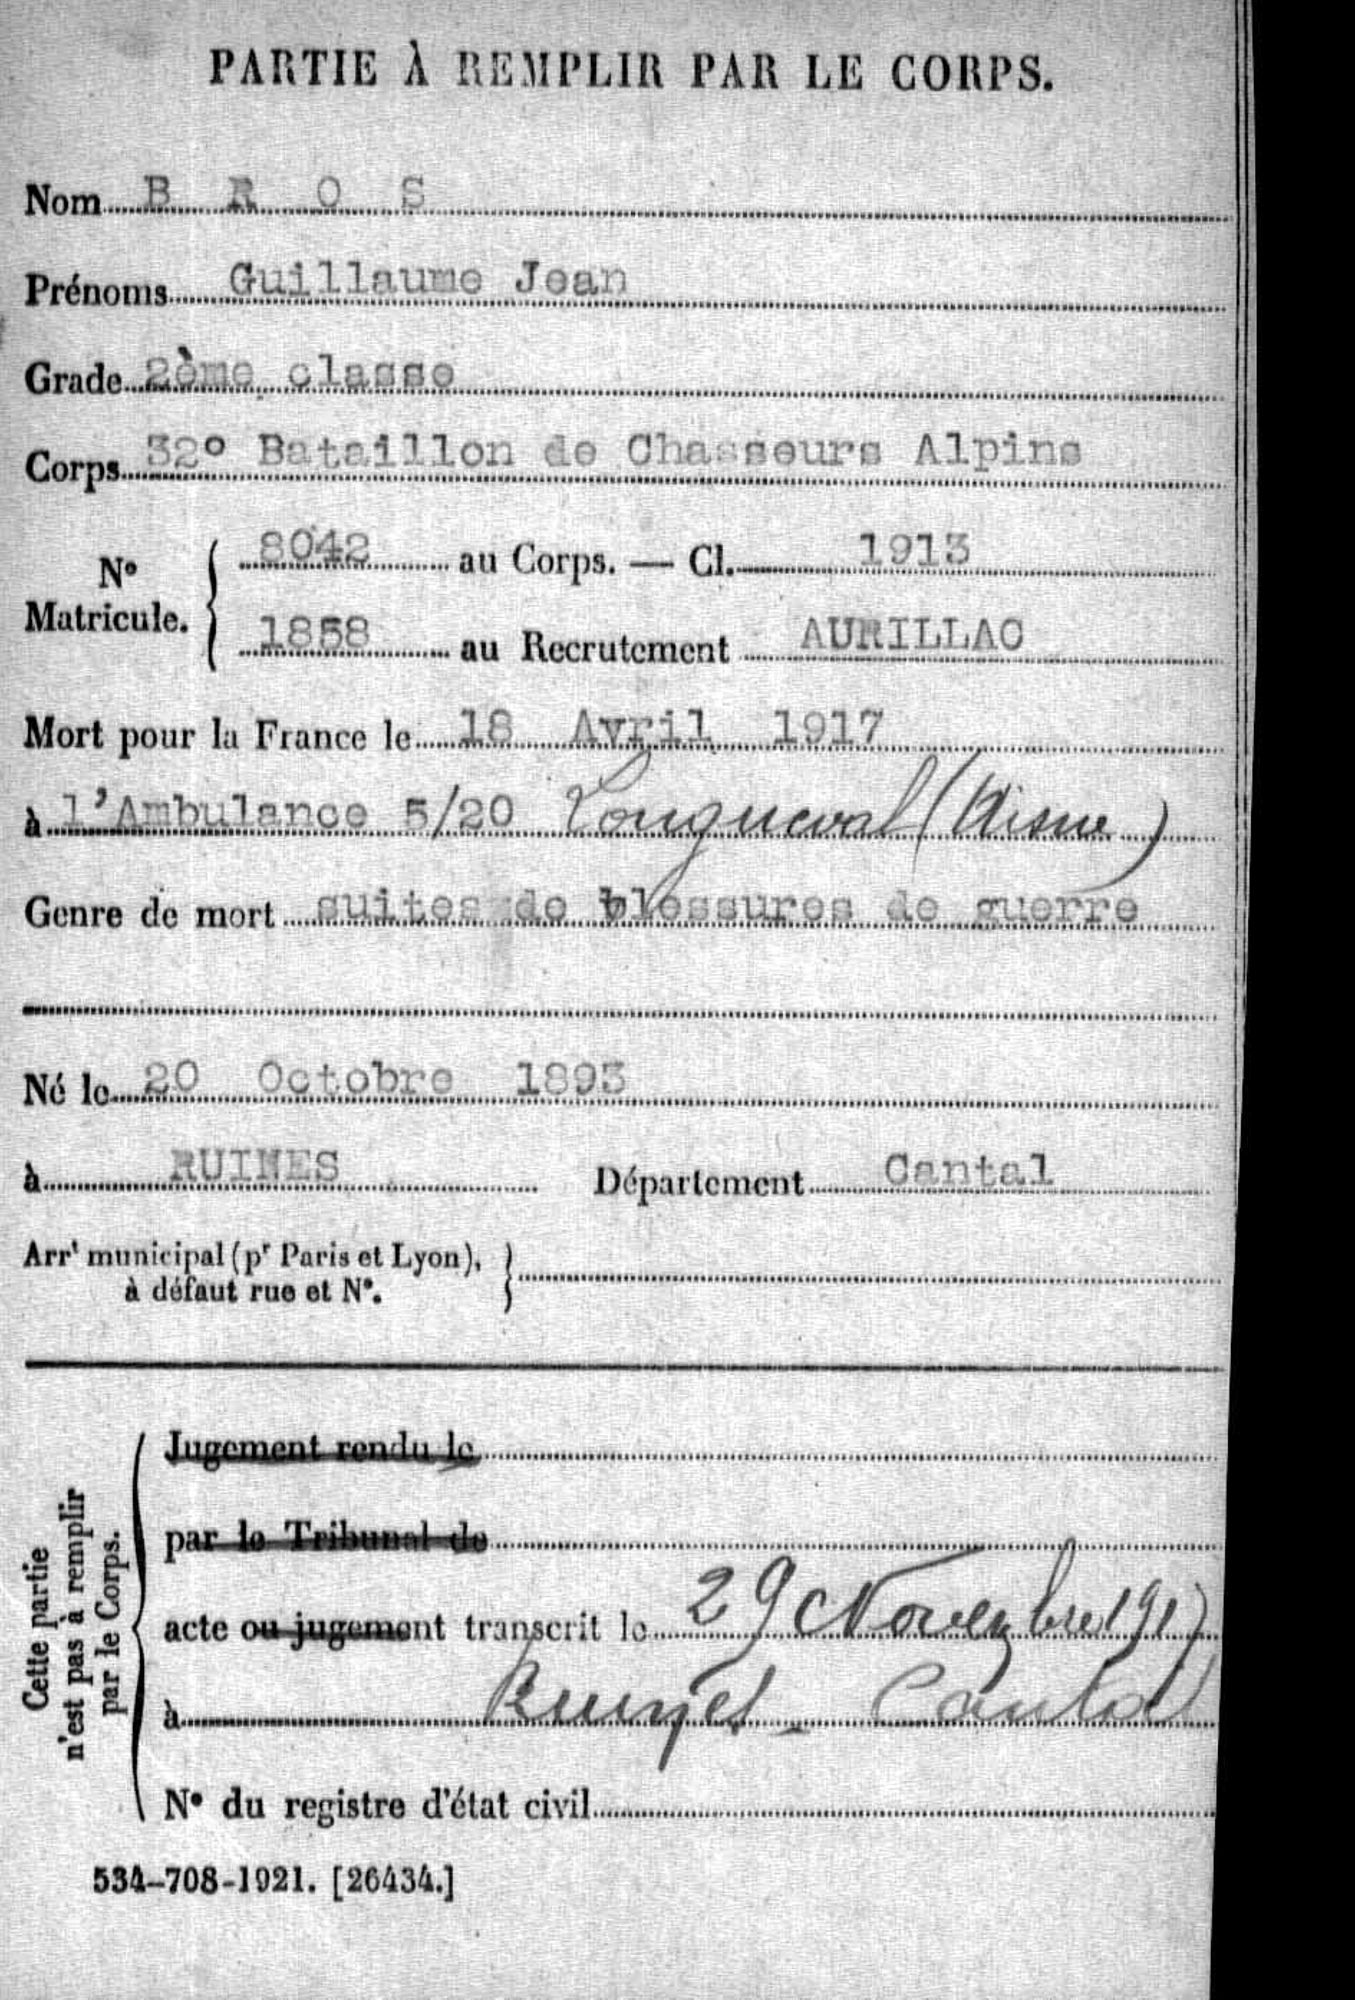 PARTIE À REMPLIR PAR LE CORPS.
Nom B R O S
Prénoms Guillaume Jean
Grade 2ème classe
Corps 32º Bataillon de Chasseurs Alpins
Nº Matricule. { 8042 au Corps. — Cl. 1913
1858 au Recrutement AURILLAC
Mort pour la France le 18 Avril 1917
à l'Ambulance 5/20 Longueval (Aisne)
Genre de mort suites de blessures de guerre
Né le 20 Octobre 1893
à RUINES Département Cantal
Arrt municipal (pr Paris et Lyon), à défaut rue et Nº. }
Cette partie n'est pas à remplir par le Corps.
Jugement rendu le
par le Tribunal de
acte ou jugement transcrit le 29 Novembre 1917
à Ruynes - Cantal
Nº du registre d'état civil
534-708-1921. [26434.]